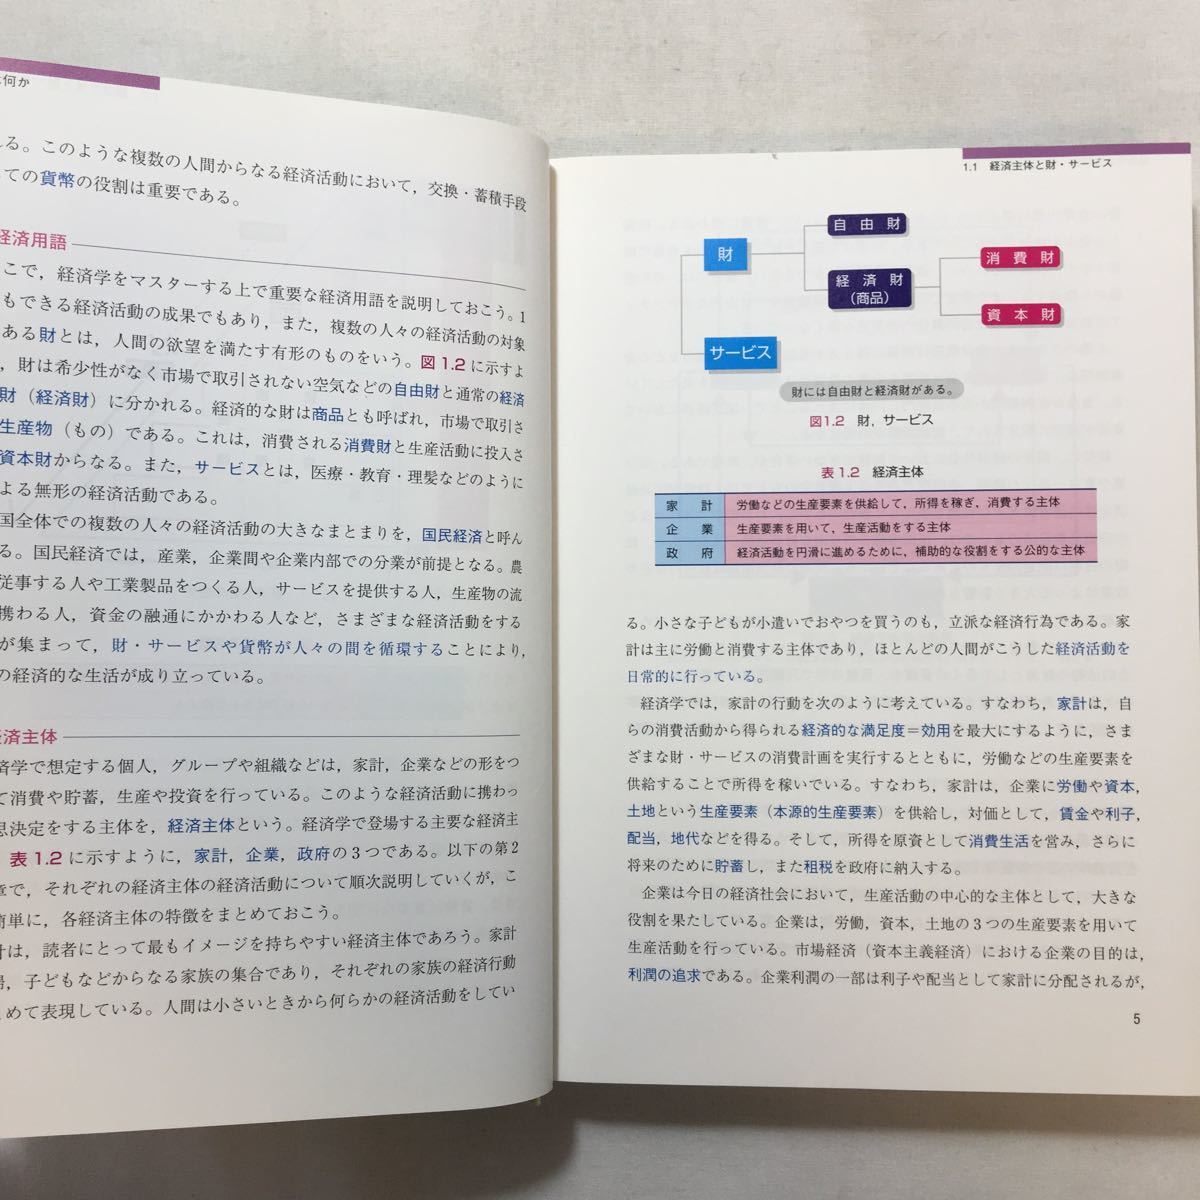 何か
る。このような複数の人間からなる経済活動において，交換・蓄積手段
ての貨幣の役割は重要である。
経済用語
こで，経済学をマスターする上で重要な経済用語を説明しておこう。1
もできる経済活動の成果でもあり，また，複数の人々の経済活動の対象
ある財とは，人間の欲望を満たす有形のものをいう。図1.2に示すよ
，財は希少性がなく市場で取引されない空気などの自由財と通常の経済
財（経済財）に分かれる。経済的な財は商品とも呼ばれ，市場で取引さ
生産物（もの）である。これは，消費される消費財と生産活動に投入さ
資本財からなる。また，サービスとは，医療・教育・理髪などのように
よる無形の経済活動である。
国全体での複数の人々の経済活動の大きなまとまりを，国民経済と呼ん
る。国民経済では，産業，企業間や企業内部での分業が前提となる。農
従事する人や工業製品をつくる人，サービスを提供する人，生産物の流
携わる人，資金の融通にかかわる人など，さまざまな経済活動をする
が集まって，財・サービスや貨幣が人々の間を循環することにより，
の経済的な生活が成り立っている。
経済主体
済学で想定する個人，グループや組織などは，家計，企業などの形をつ
て消費や貯蓄，生産や投資を行っている。このような経済活動に携わっ
思決定をする主体を，経済主体という。経済学で登場する主要な経済主
表1.2に示すように，家計，企業，政府の3つである。以下の第2
章で，それぞれの経済主体の経済活動について順次説明していくが，こ
簡単に，各経済主体の特徴をまとめておこう。
計は，読者にとって最もイメージを持ちやすい経済主体であろう。家計
婦，子どもなどからなる家族の集合であり，それぞれの家族の経済行動
めて表現している。人間は小さいときから何らかの経済活動をしてい
1.1 経済主体と財・サービス
財
自由財
経済財
（商品）
消費財
資本財
サービス
財には自由財と経済財がある。
図1.2 財，サービス
表1.2 経済主体
家計 労働などの生産要素を供給して，所得を稼ぎ，消費する主体
企業 生産要素を用いて，生産活動をする主体
政府 経済活動を円滑に進めるために，補助的な役割をする公的な主体
る。小さな子どもが小遣いでおやつを買うのも，立派な経済行為である。家
計は主に労働と消費する主体であり，ほとんどの人間がこうした経済活動を
日常的に行っている。
経済学では，家計の行動を次のように考えている。すなわち，家計は，自
らの消費活動から得られる経済的な満足度＝効用を最大にするように，さま
ざまな財・サービスの消費計画を実行するとともに，労働などの生産要素を
供給することで所得を稼いでいる。すなわち，家計は，企業に労働や資本，
土地という生産要素（本源的生産要素）を供給し，対価として，賃金や利子，
配当，地代などを得る。そして，所得を原資として消費生活を営み，さらに
将来のために貯蓄し，また租税を政府に納入する。
企業は今日の経済社会において，生産活動の中心的な主体として，大きな
役割を果たしている。企業は，労働，資本，土地の3つの生産要素を用いて
生産活動を行っている。市場経済（資本主義経済）における企業の目的は，
利潤の追求である。企業利潤の一部は利子や配当として家計に分配されるが，
5